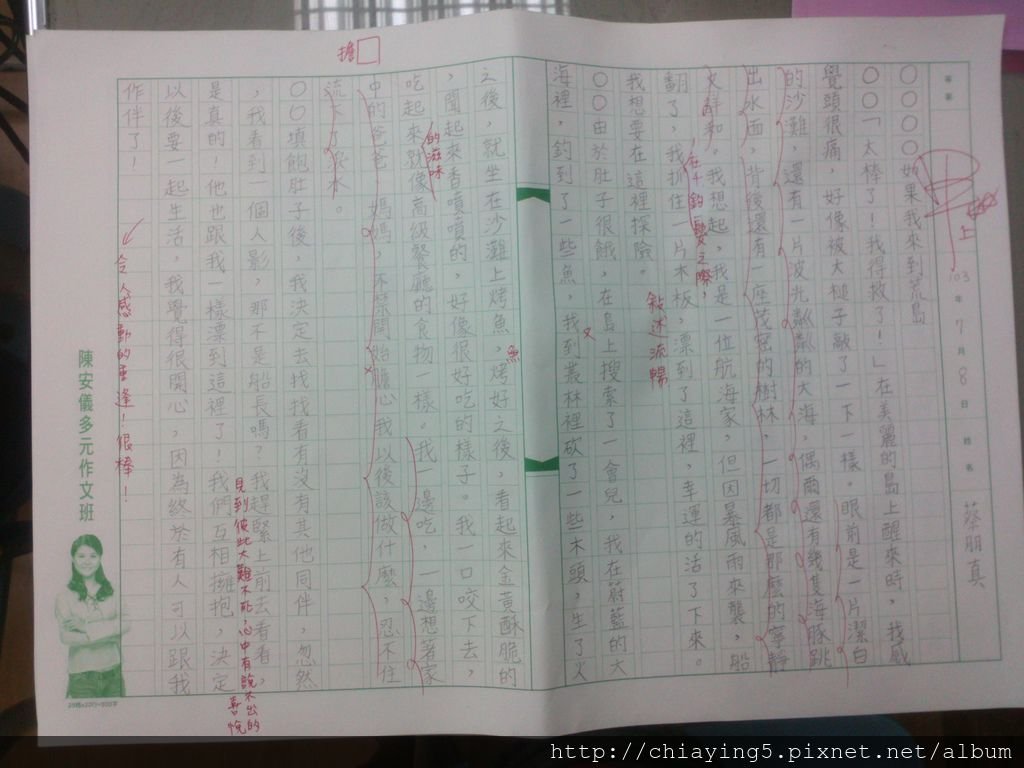 103年7月8日 姓名 蔡朋真
上
○○○○如果我來到荒島
○○「太棒了!我得救了!」在美麗的島上醒來時,我感
覺頭很痛,好像被大槌子敲了一下一樣。眼前是一片潔白
的沙灘,還有一片波光粼粼的大海,偶爾還有幾隻海豚跳
出水面,背後還有一座茂密的樹林,一切都是那麼的寧靜
又祥和。我想起,我是一位航海家,但因暴風雨來襲,船
在千鈞一髮之際,
翻了,我抓住一片木板,漂到了這裡,幸運的活了下來。
敘述流暢
我想要在這裡探險。
○○由於肚子很餓,在島上搜索了一會兒,我在蔚藍的大
海裡,釣到了一些魚,我到叢林裡砍了一些木頭,生了火
又
之後,就坐在沙灘上烤魚,烤好之後,看起來金黃酥脆的
魚
,聞起來香噴噴的,好像很好吃的樣子。我一口咬下去,
吃起來就像高級餐廳的食物一樣。我一邊吃,一邊想著家
的滋味
中的爸爸、媽媽,不禁開始膽心我以後該做什麼,忍不住
擔
流下了淚水。
○○填飽肚子後,我決定去找找看有沒有其他同伴,忽然
,我看到一個人影,那不是船長嗎?我趕緊上前去看看,
見到彼此大難不死,心中有說不出的喜悅
是真的!他也跟我一樣漂到這裡了!我們互相擁抱,決定
以後要一起生活,我覺得很開心,因為終於有人可以跟我
作伴了!
令人感動的重逢!很棒!
陳安儀多元作文班
http://chiaying5.pixnet.net/album